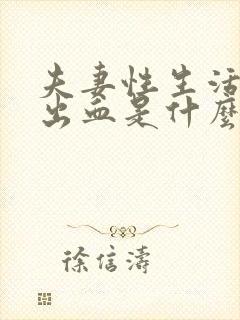 夫妻性生活
出血是什麼
徐信濤